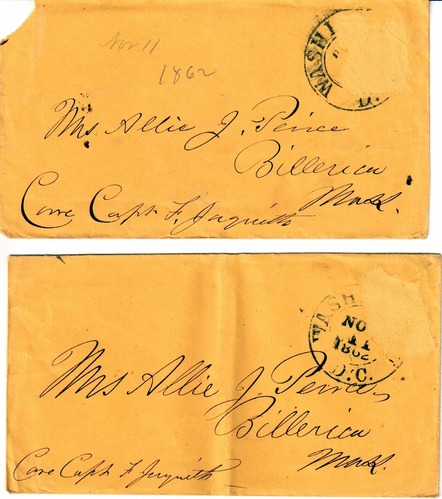 Nov 11
1862
WASHI
D.
Mrs Allie J. Peirce
Billerica
Mass.
Care Capt F. Jaquith
WASH
NO
11
1862
D.C.
Mrs Allie J. Peirce
Billerica
Mass.
Care Capt F Jaquith